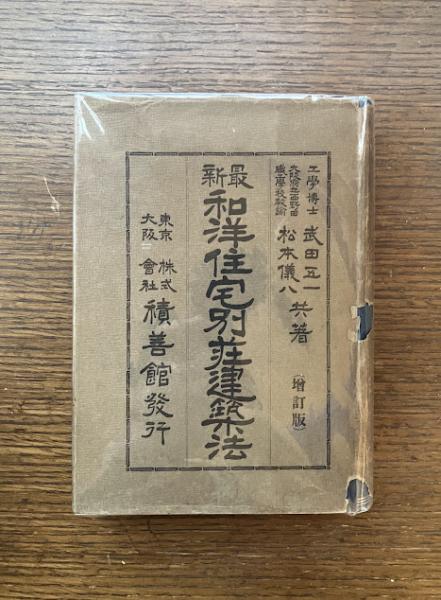 工學博士 武田五一
大阪市立西野田
職工學校敎諭 松本儀八 共著
(增訂版)
最新
和洋住宅別荘建築法
東京
大阪
株式
會社
積善館發行